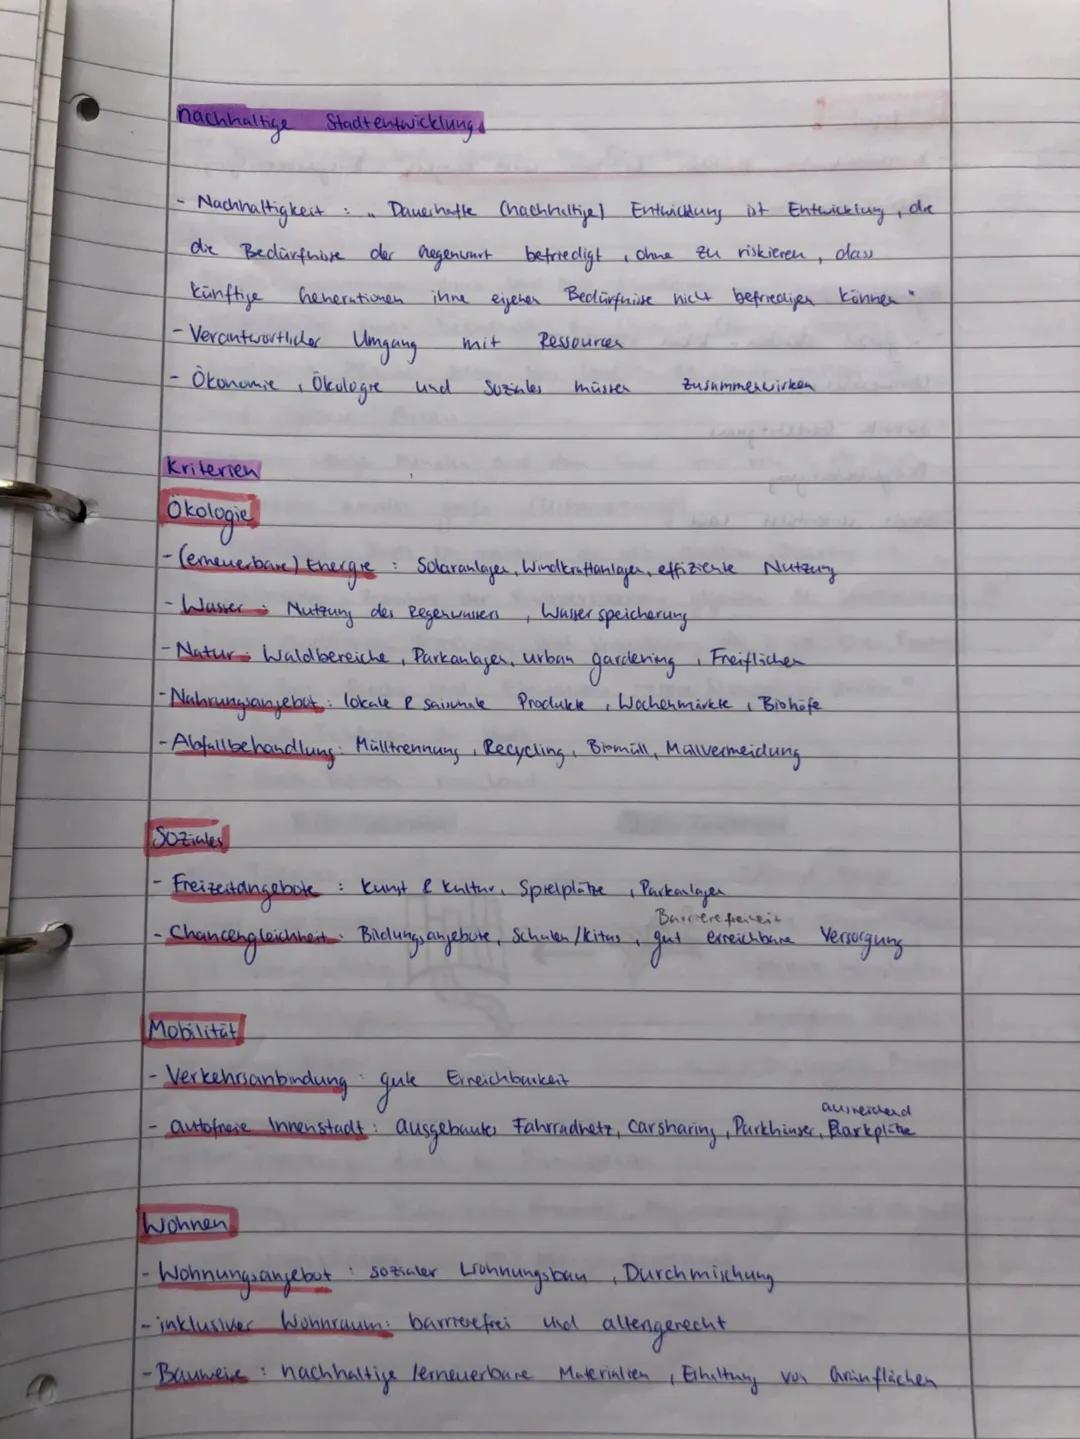 nachhaltige Stadtentwicklung
- Nachhaltigkeit : „ Dauerhafte (nachhaltige) Entwicklung ist Entwicklung, die
die Bedürfnisse der Gegenwart befriedigt, ohne zu riskieren, dass
künftige Generationen ihre eigenen Bedürfnisse nicht befriedigen können "
- Verantwortlicher Umgang mit Ressourcen
- Ökonomie, Ökologie und Soziales müssen zusammenwirken
Kriterien
Ökologie
- (erneuerbare) Energie : Solaranlagen, Windkraftanlagen, effiziente Nutzung
- Wasser : Nutzung des Regenwassers, Wasserspeicherung
- Natur : Waldbereiche, Parkanlagen, urban gardening, Freiflächen
- Nahrungsangebot : lokale & saisonale Produkte, Wochenmärkte, Biohöfe
- Abfallbehandlung : Mülltrennung, Recycling, Biomüll, Müllvermeidung
Soziales
- Freizeitangebote : Kunst & Kultur, Spielplätze, Parkanlagen
Barrierefreiheit
- Chancengleichheit : Bildungsangebote, Schulen/Kitas, gut erreichbare Versorgung
Mobilität
- Verkehrsanbindung : gute Erreichbarkeit
ausreichend
- autofreie Innenstadt : ausgebautes Fahrradnetz, carsharing, Parkhäuser, Parkplätze
Wohnen
- Wohnungsangebot : sozialer Wohnungsbau, Durchmischung
- inklusiver Wohnraum : barrierefrei und altengerecht
- Bauweise : nachhaltige /erneuerbare Materialien, Erhaltung von Grünflächen